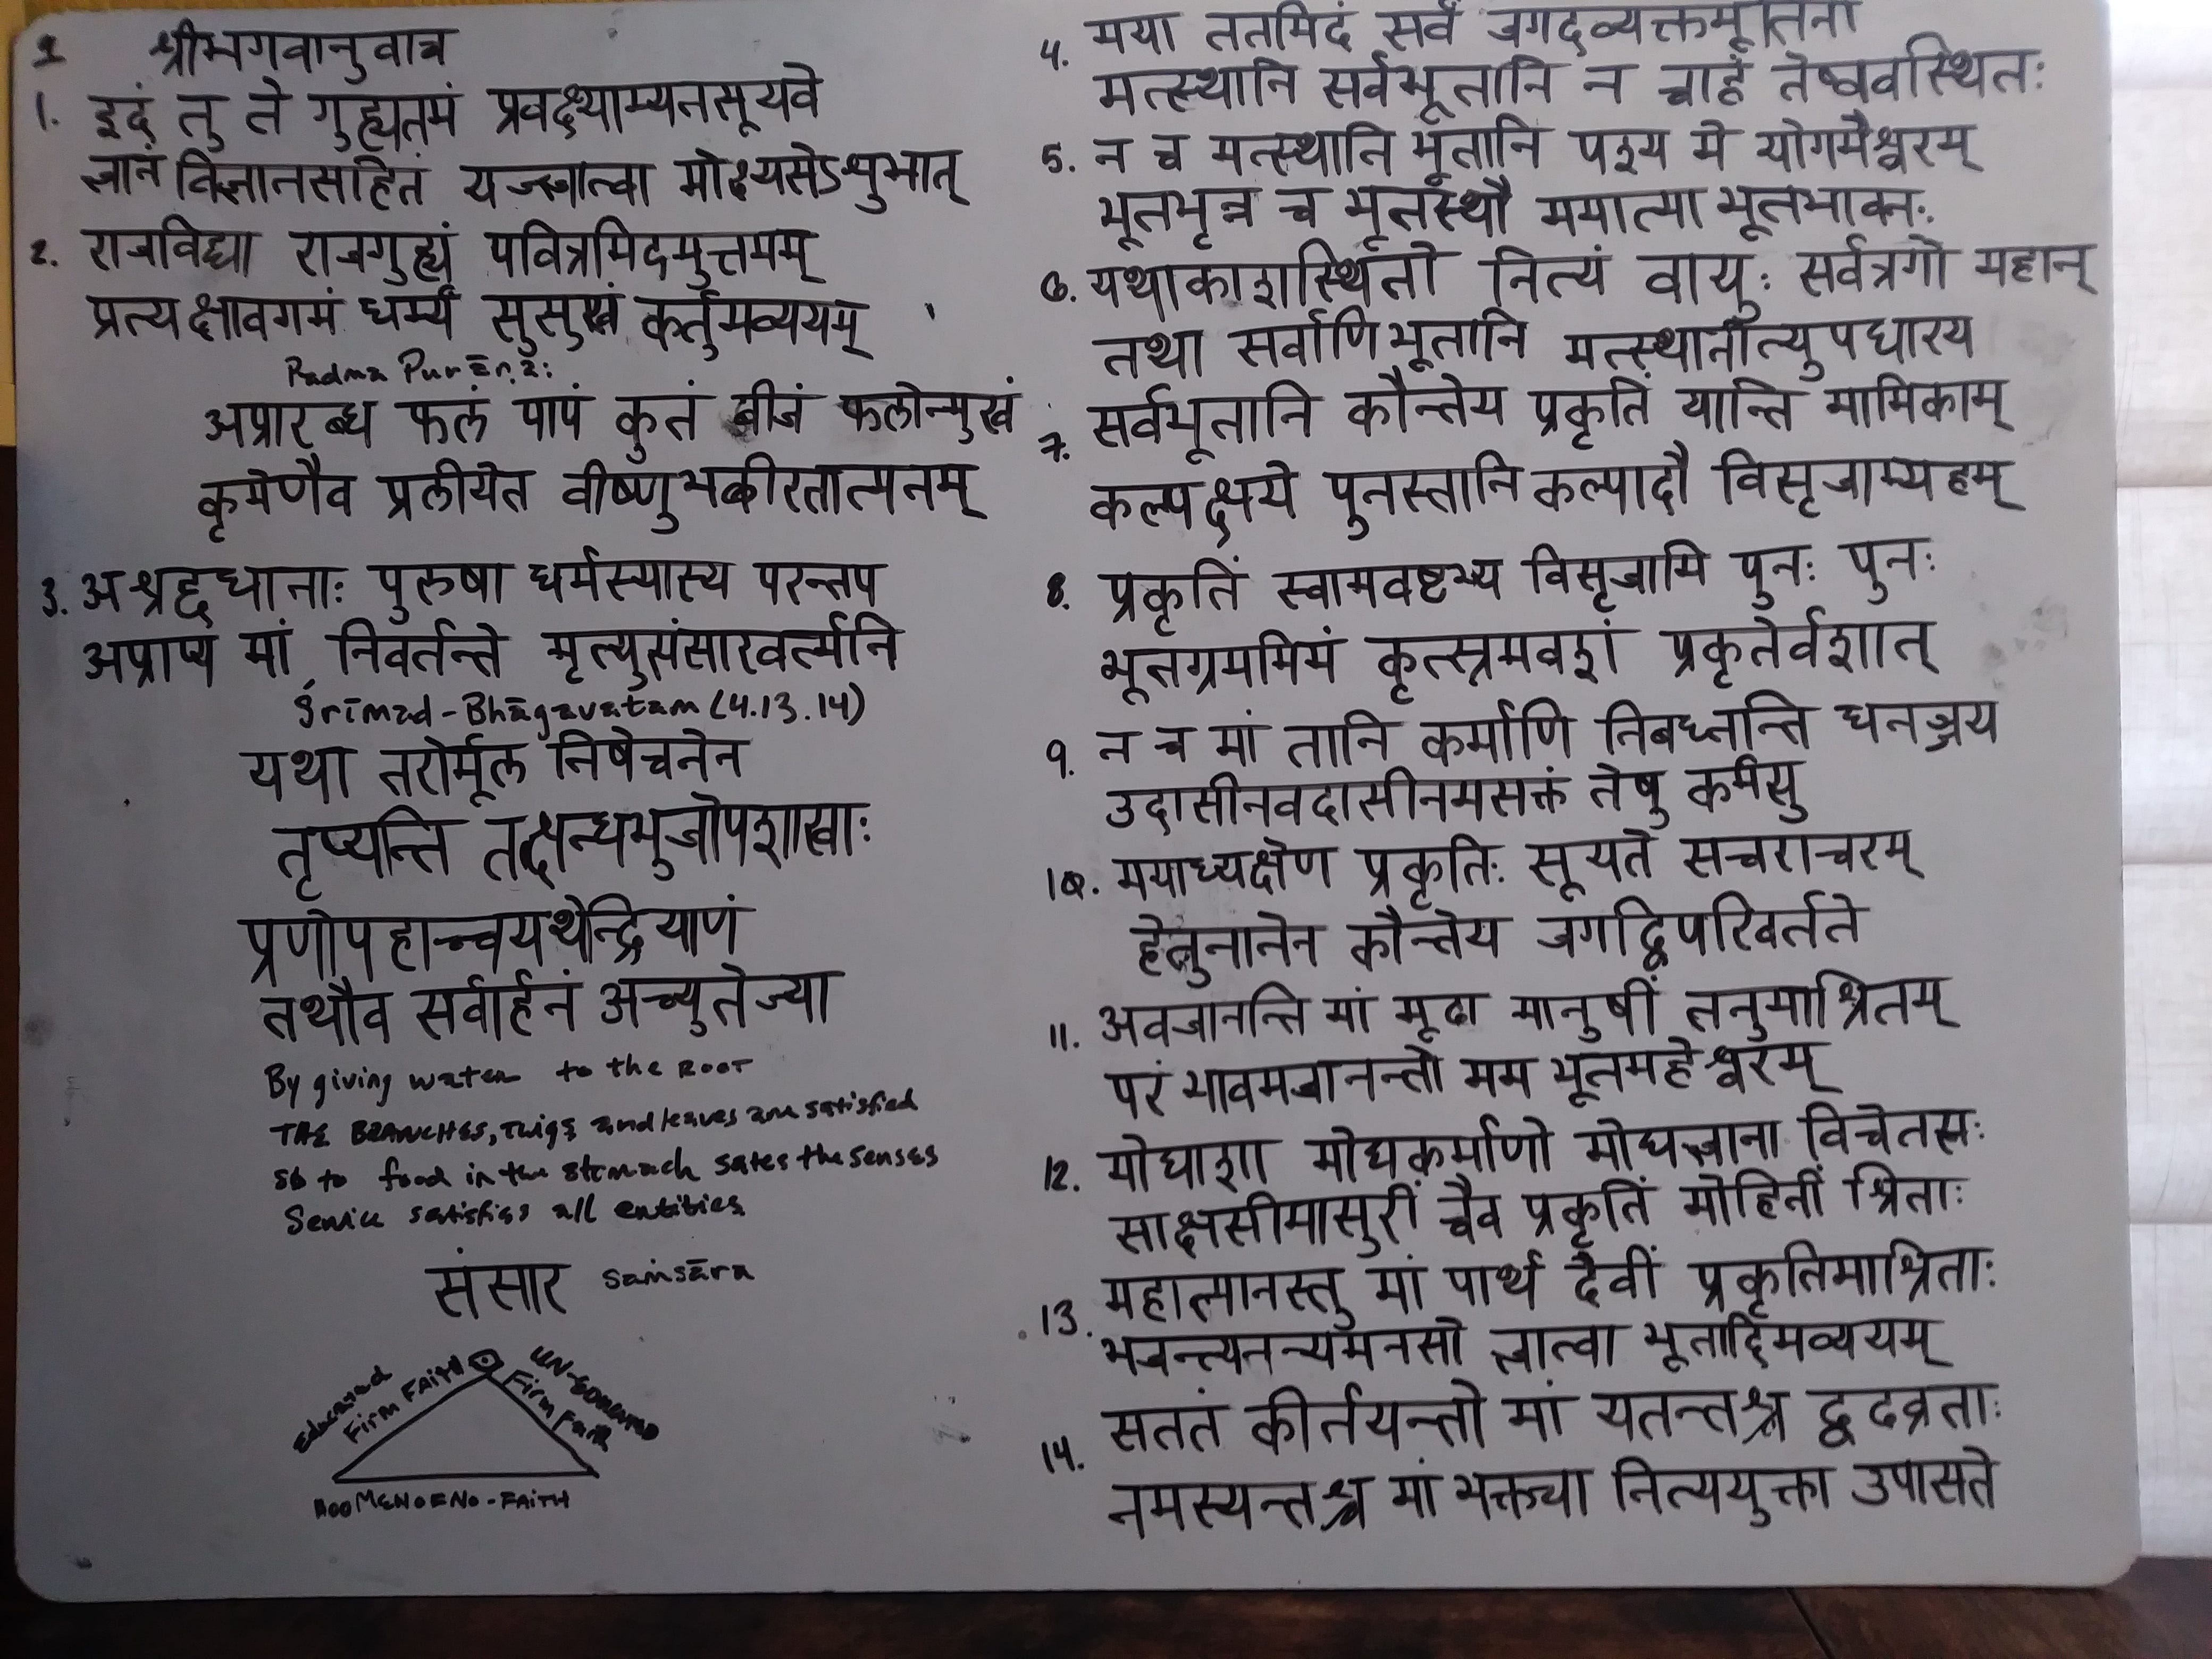 श्रीभगवानुवाच
1. इदं तु ते गुह्यतमं प्रवक्ष्याम्यनसूयवे
ज्ञानं विज्ञानसहितं यज्ज्ञात्वा मोक्ष्यसेऽशुभात्
2. राजविद्या राजगुह्यं पवित्रमिदमुत्तमम्
प्रत्यक्षावगमं धर्म्यं सुसुखं कर्तुमव्ययम्
Padma Purāṇa:
अप्रारब्ध फलं पापं कुतं बीजं फलोन्मुखं
कृमेणैव प्रलीयेत वीष्णुभक्तीरतात्मनम्
3. अश्रद्दधानाः पुरुषा धर्मस्यास्य परन्तप
अप्राप्य मां निवर्तन्ते मृत्युसंसारवर्त्मनि
Śrīmad-Bhāgavatam (4.13.14)
यथा तरोर्मूल निषेचनेन
तृप्यन्ति तत्क्षन्धभुजोपशाखाः
प्रणोपहाच्चयथेन्द्रियाणं
तथौव सर्वार्हनं अच्युतेज्या
By giving water to the ROOT
THE BRANCHES, Twigs and leaves are satisfied
So to food in the stomach sates the senses
Service satisfies all entities
संसार saṁsāra
Educated Firm FAITH
Firm Faith
MEN OF NO-FAITH
4. मया ततमिदं सर्वं जगदव्यक्तमूर्तिना
मत्स्थानि सर्वभूतानि न चाहं तेष्ववस्थितः
5. न च मत्स्थानि भूतानि पश्य मे योगमैश्वरम्
भूतभृन्न च भूतस्थौ ममात्मा भूतभावनः
6. यथाकाशस्थितो नित्यं वायुः सर्वत्रगो महान्
तथा सर्वाणि भूतानि मत्स्थानीत्युपधारय
7. सर्वभूतानि कौन्तेय प्रकृतिं यान्ति मामिकाम्
कल्पक्षये पुनस्तानि कल्पादौ विसृजाम्यहम्
8. प्रकृतिं स्वामवष्टभ्य विसृजामि पुनः पुनः
भूतग्रममिमं कृत्स्नमवशं प्रकृतेर्वशात्
9. न च मां तानि कर्माणि निबध्नन्ति धनञ्जय
उदासीनवदासीनमसक्तं तेषु कर्मसु
10. मयाध्यक्षेण प्रकृतिः सूयते सचराचरम्
हेतुनानेन कौन्तेय जगद्विपरिवर्तते
11. अवजानन्ति मां मूढा मानुषीं तनुमाश्रितम्
परं भावमजानन्तो मम भूतमहेश्वरम्
12. मोघाशा मोघकर्माणो मोघज्ञाना विचेतसः
साक्षसीमासुरीं चैव प्रकृतिं मोहिनीं श्रिताः
13. महात्मानस्तु मां पार्थ दैवीं प्रकृतिमाश्रिताः
भजन्त्यनन्यमनसो ज्ञात्वा भूतादिमव्ययम्
14. सततं कीर्तयन्तो मां यतन्तश्च दृढव्रताः
नमस्यन्तश्च मां भक्तया नित्ययुक्ता उपासते